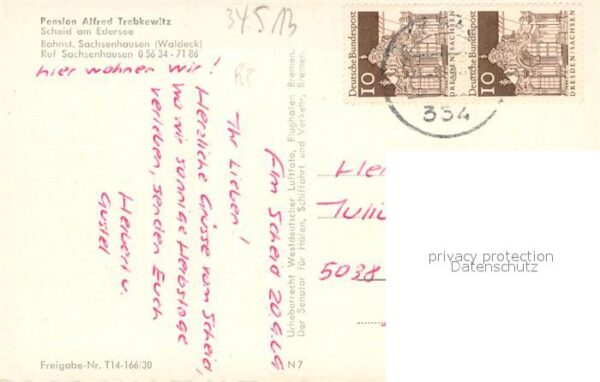 Pension Alfred Trebkewitz
Scheid am Edersee
Bahnst. Sachsenhausen (Waldeck)
Ruf Sachsenhausen 0 56 34 - 71 86
hier wohnen wir!
34513
Am Scheid 20.9.69
Ihr Lieben!
Herzliche Grüsse vom Scheid,
wo wir sonnige Herbsttage
verleben, senden Euch
Herbert u.
Gustel
Urheberrecht Westdeutscher Luftfoto, Flughafen Bremen.
Der Senator für Häfen, Schiffahrt und Verkehr, Bremen.
Deutsche Bundespost
10
DRESDEN/SACHSEN
Deutsche Bundespost
10
DRESDEN/SACHSEN
354
5038
privacy protection
Datenschutz
Freigabe-Nr. T14-166/30
N 7